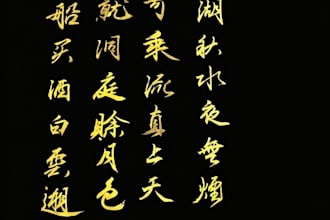 湖秋水夜無煙
可乘流直上天
就洞庭賒月色
船买酒白雲邊